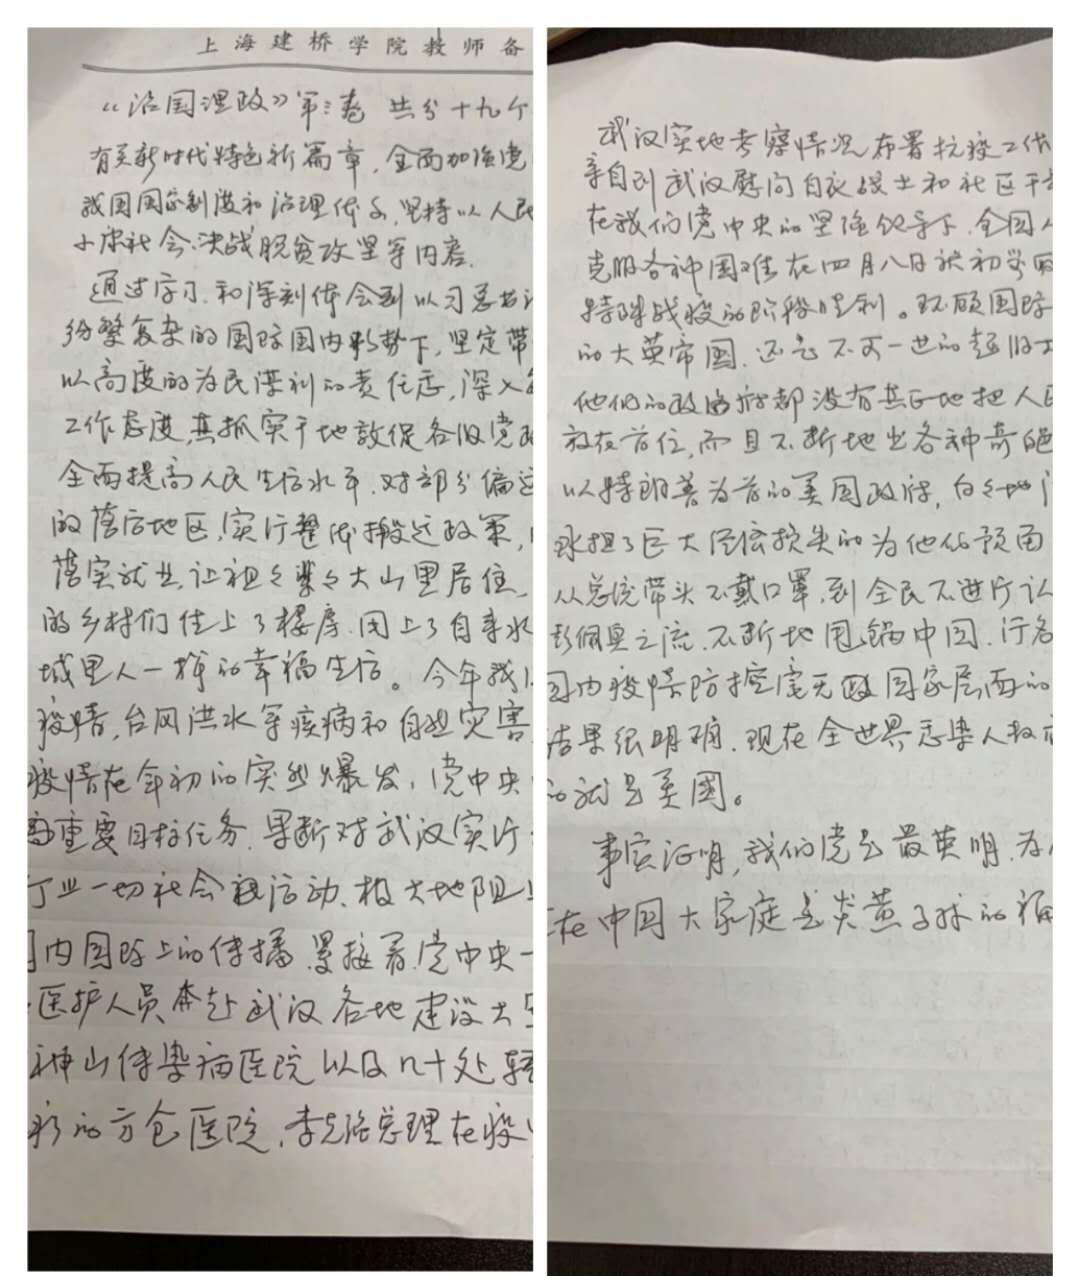 上海建桥学院教师备
《治国理政》第三卷 共分十九个
有关新时代特色新篇章，全面加强党
我国国家制度和治理体系，坚持以人民
小康社会、决战脱贫攻坚等内容。
通过学习，和深刻体会到以习总书记
纷繁复杂的国际国内形势下，坚定带
以高度的为民谋利的责任感，深入
工作态度，真抓实干地敦促各级党政
全面提高人民生活水平，对部分偏远
的落后地区，实行整体搬迁政策，
落实就业，让祖祖辈辈大山里居住
的乡村们住上了楼房，用上了自来水
城里人一样的幸福生活。今年我们
疫情，台风洪水等疾病和自然灾害
疫情在年初的突然爆发，党中央
重要目标任务，果断对武汉实行
一切社会活动，极大地阻
国内国际上的传播，紧接着党中央一
医护人员奔赴武汉各地建设大
神山传染病医院以及几十处轻
的方仓医院，李克强总理在疫
武汉实地考察情况布署抗疫工作
亲自到武汉慰问白衣战士和社区干
在我们党中央的坚强领导下，全国人
克服各种困难在四月八日
特殊战疫的阶段胜利。环顾国际
的大英帝国，还是不可一世的超级大
他们的政府都没有真正地把人民
放在首位，而且不断地出各种奇葩
以特朗普为首的美国政府，白白地
球担了巨大经济损失的为他们预留
从总统带头不戴口罩，到全民不进行认
彭佩奥之流，不断地甩锅中国，行
国内疫情防控毫无国家层面的
结果很明确，现在全世界感染人数
的就是美国。
事实证明，我们党是最英明，为人
在中国大家庭是炎黄子孙的福